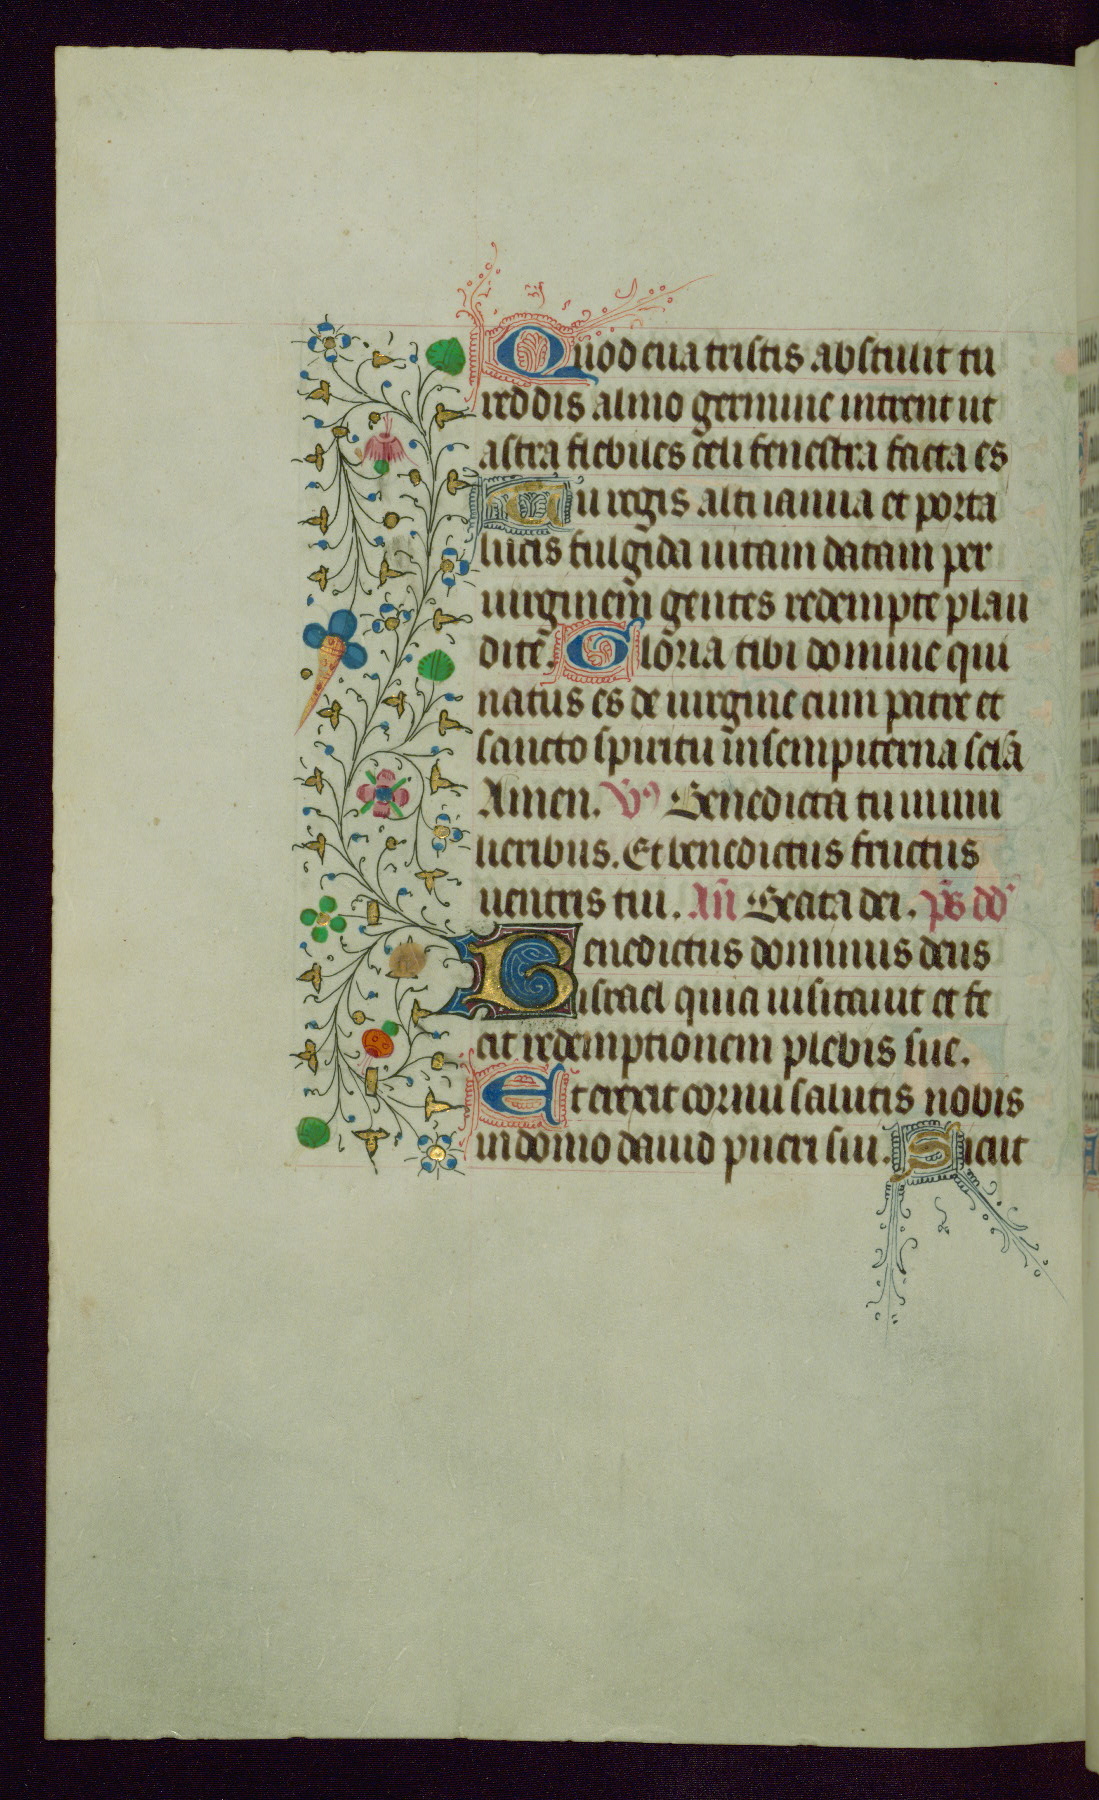 Quod eua tristis abstulit tu
reddis almo germine intrent ut
astra flebiles celi fenestra facta es
Tu regis alti ianua et porta
lucis fulgida uitam datam per
uirginem gentes redempte plau
dite. Gloria tibi domine qui
natus es de uirgine cum patre et
sancto spiritu in sempiterna scľa
Amen. V9 Benedicta tu in mu
lieribus. Et benedictus fructus
uentris tui. Añ Beata dei. p̄s dd̄
Benedictus dominus deus
israel quia uisitauit et fe
cit redemptionem plebis sue.
Et erexit cornu salutis nobis
in domo dauid pueri sui. Sicut